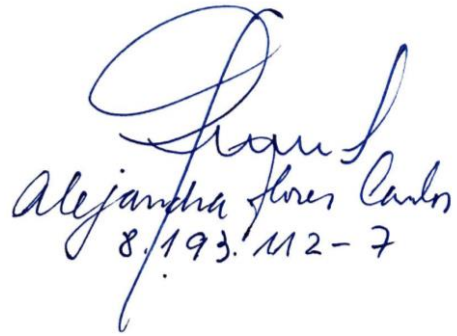 Alejandra Flores Carlos
8.193.112-7